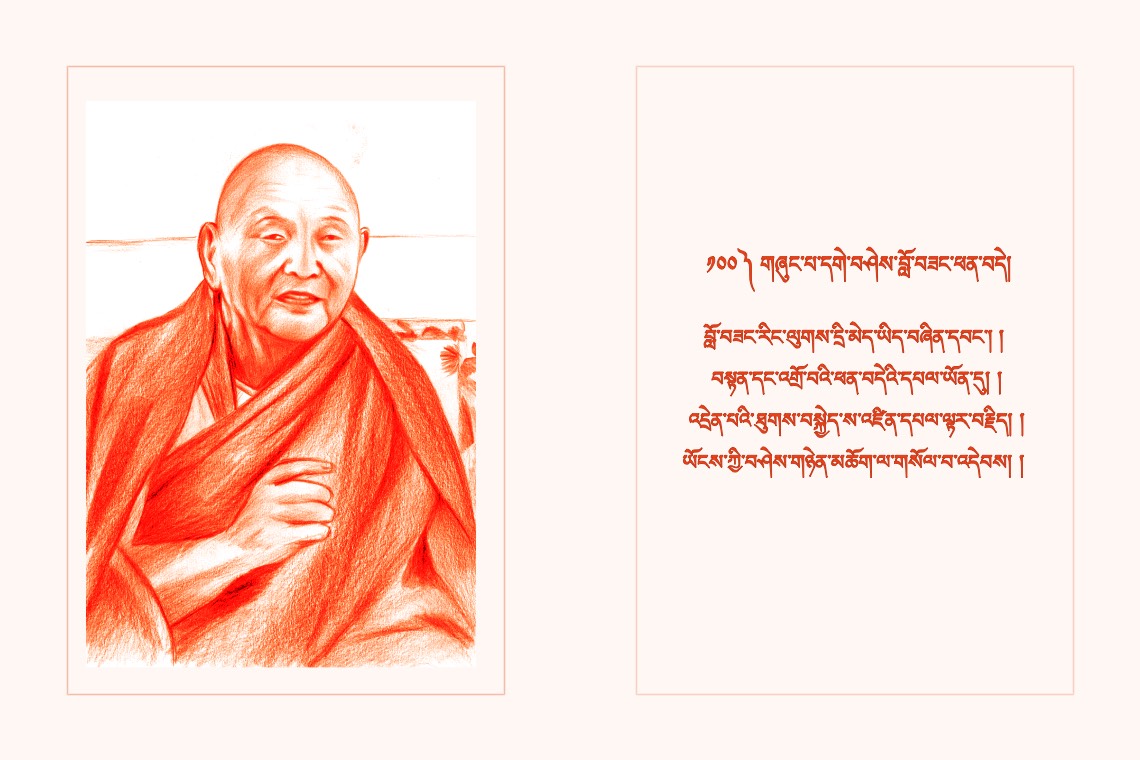 ༡༠༠༽ གཞུང་པ་དགེ་བཤེས་བློ་བཟང་ཕན་བདེ།
བློ་བཟང་རིང་ལུགས་དྲི་མེད་ཡིད་བཞིན་དབང་། །
བསྟན་དང་འགྲོ་བའི་ཕན་བདེའི་དཔལ་ཡོན་དུ། །
འདྲེན་པའི་ཐུགས་བསྐྱེད་ས་འཛིན་དཔལ་ལྟར་བརྗིད། །
ཡོངས་ཀྱི་བཤེས་གཉེན་མཆོག་ལ་གསོལ་བ་འདེབས། །